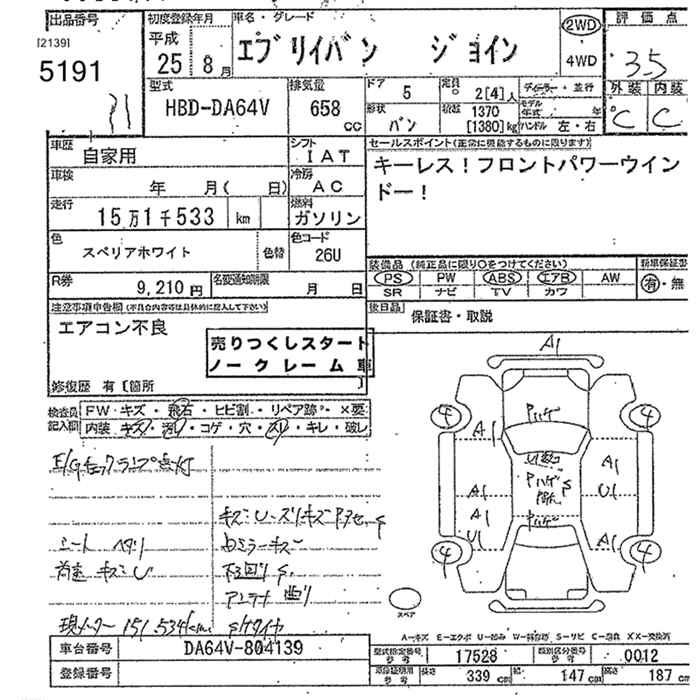 出品番号
[2139]
5191
初度登録年月
平成
25 8月
車名・グレード
エブリイバン ジョイン
2WD
4WD
評価点
3.5
外装 内装
C C
型式
HBD-DA64V
排気量
658 cc
ドア 5
定員 2[4]人
形状 バン
積載 1370 [1380]kg
ディーラー・並行
モデル年式 年
ハンドル 左・右
車歴
自家用
シフト
IAT
車検
年 月( 日)
冷房
AC
走行
15万1千533 km
燃料
ガソリン
色
スペリアホワイト
色替
色コード
26U
R券
9,210円
名変通知期限
月 日
セールスポイント(正常に機能するものに限ります)
キーレス!フロントパワーウイン
ドー!
装備品 (純正品に限り○をつけてください)
PS PW ABS エアB AW
SR ナビ TV カワ
新車保証書
有・無
後日品
保証書・取説
注意事項申告欄(不具合内容等は具体的に記入して下さい)
エアコン不良
売りつくしスタート
ノークレーム車
修復歴 有〔箇所 〕
検査員記入欄
FW キズ・飛石・ヒビ割・リペア跡・×要
内装 キズ・汚レ・コゲ・穴・スリ・キレ・破レ
E/Gチェックランプ点灯
シート ヘタリ
キズU
下回りS
アンテナ 曲り
現メーター 151,534km
A1
4 4
A1
A1
A1 U1
A1
U1 A1
4 4
スペア
A-キズ E-エクボ U-凹み W-補修跡 S-サビ C-腐食 XX-交換済
車台番号
DA64V-804139
登録番号
型式指定番号 参考
17528
類別区分番号 参考
0012
車検証寸法 参考
長さ 339cm
幅 147cm
高さ 187cm